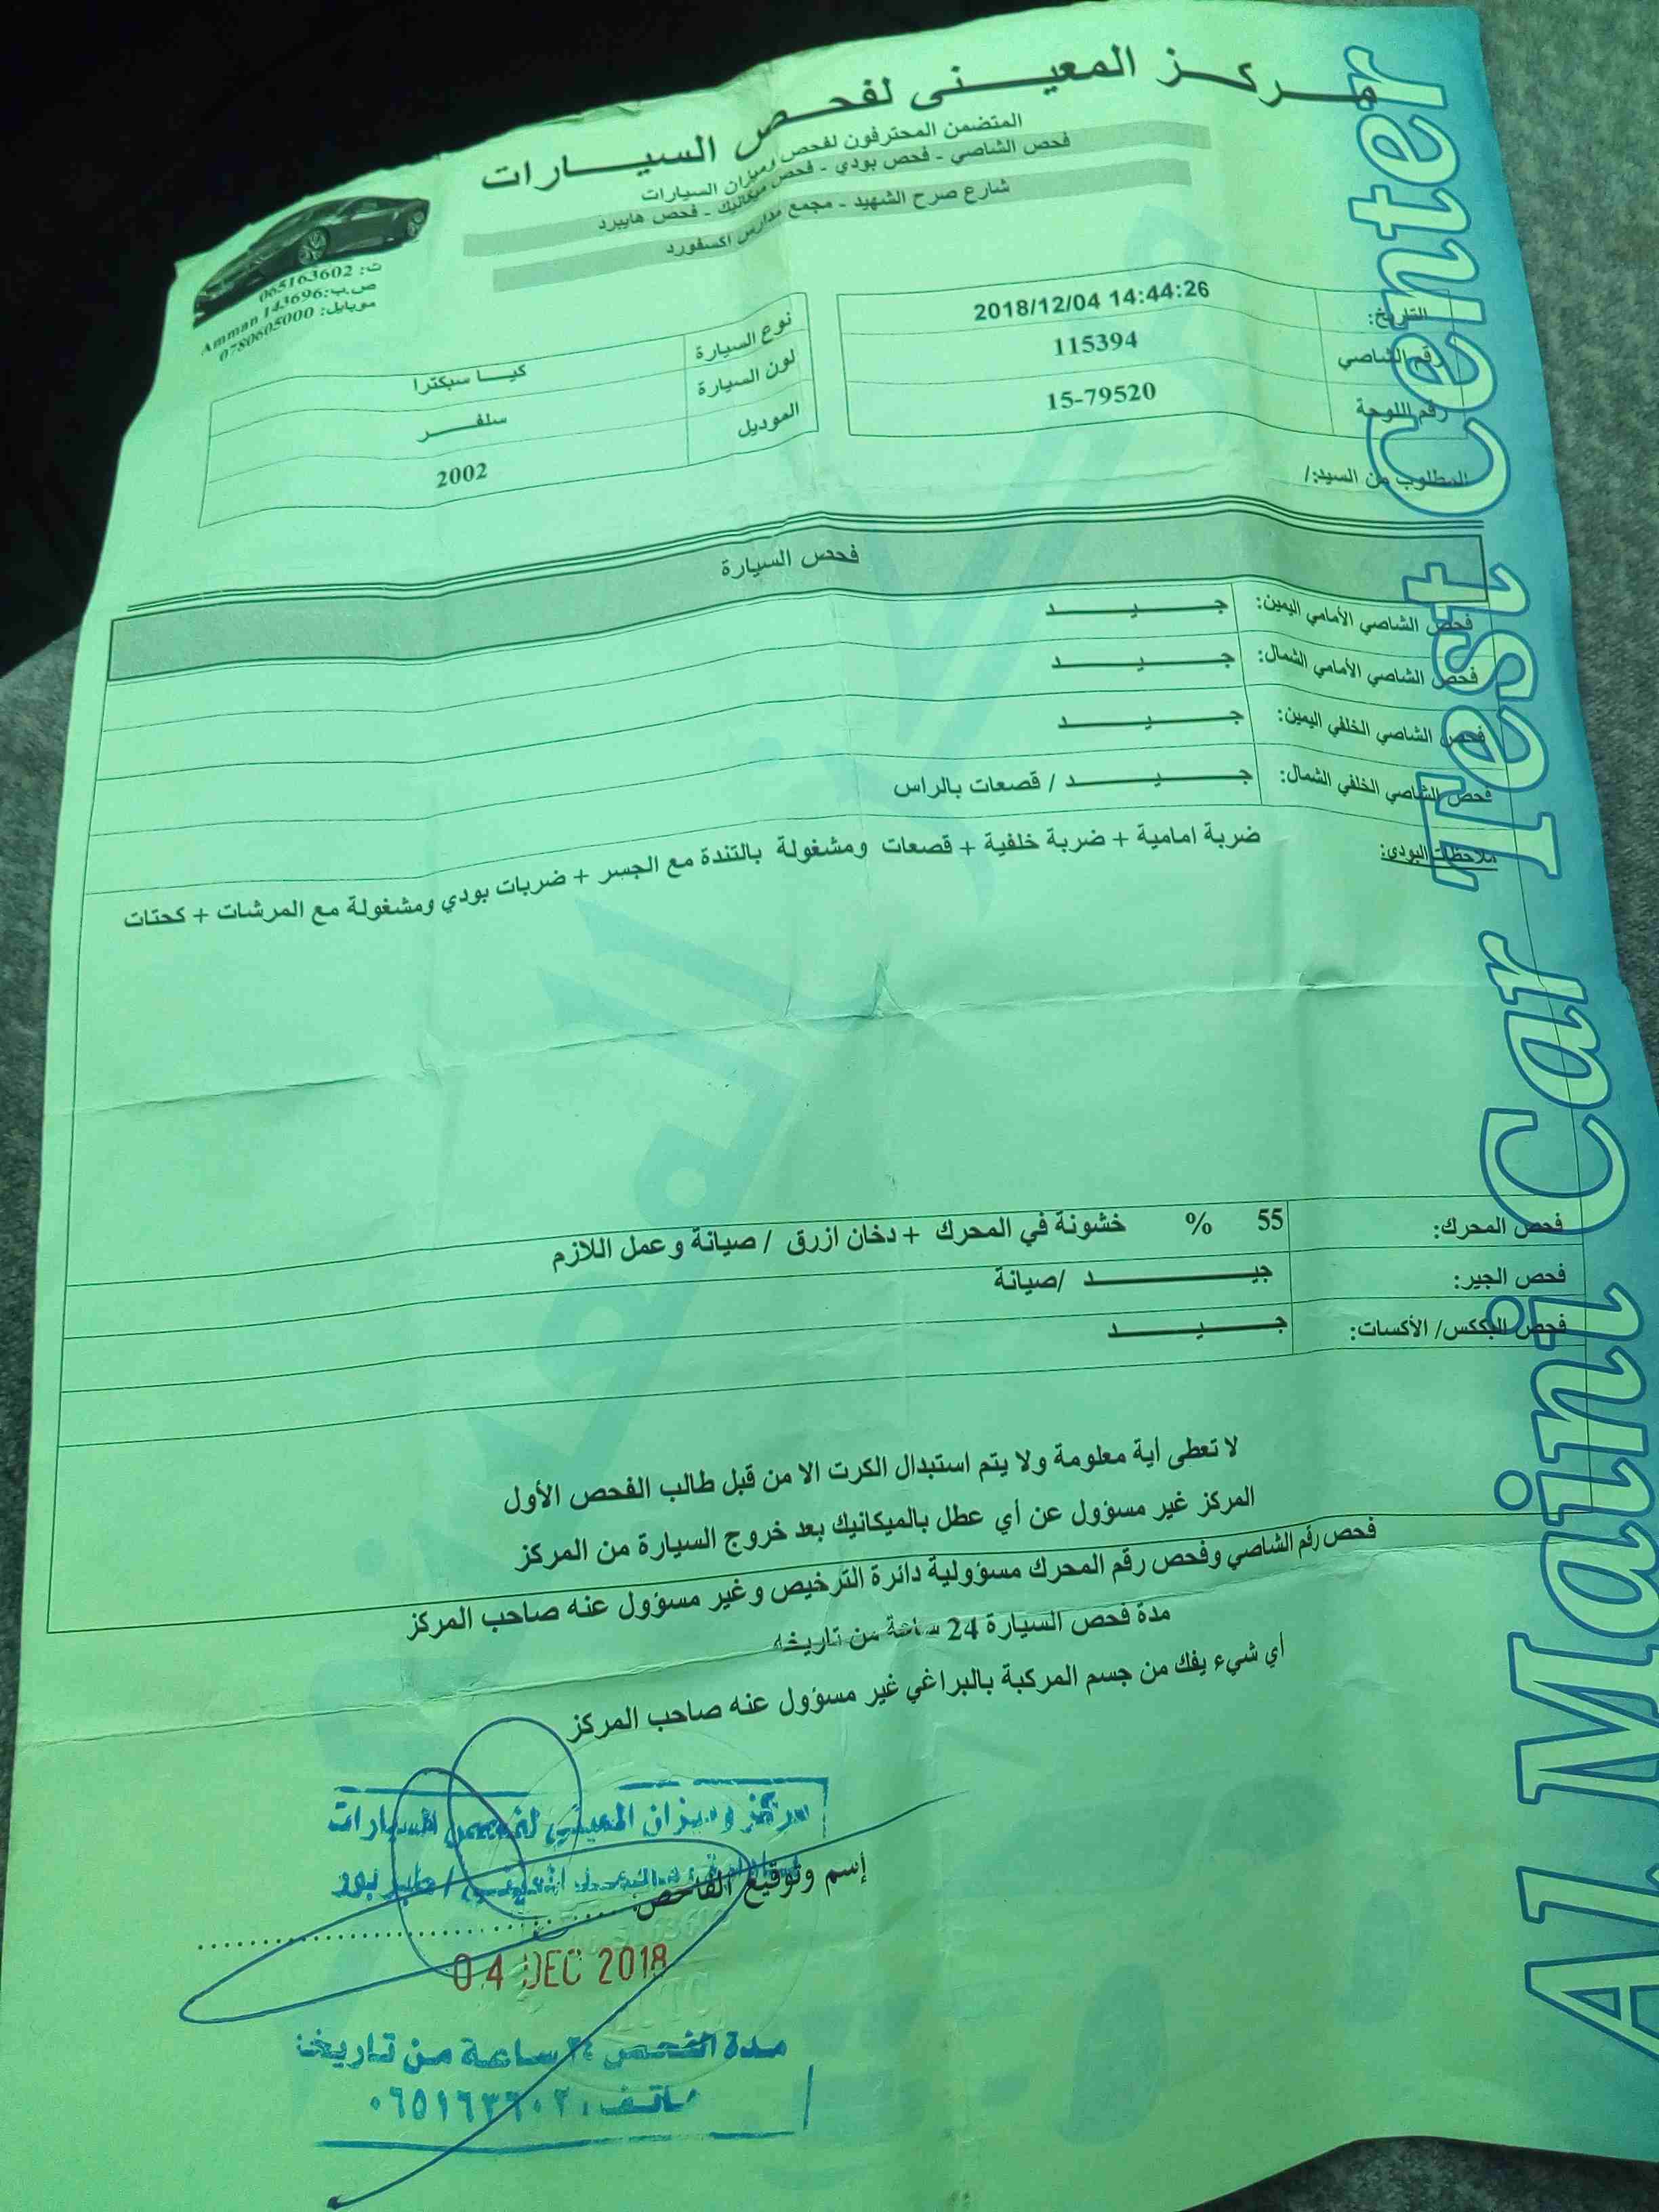 مركز المعيني لفحص السيارات
المتضمن المحترفون لفحص وميزان السيارات
فحص الشاصي - فحص بودي - فحص ميكانيك - فحص هايبرد
شارع صرح الشهيد - مجمع مدارس اكسفورد
ت: 065163602
ص.ب: 143696 Amman
موبايل: 0780605000
التاريخ: 2018/12/04 14:44:26
رقم الشاصي 115394
رقم اللوحة 15-79520
نوع السيارة كيا سبكترا
لون السيارة سلفر
الموديل 2002
المطلوب من السيد:/
فحص السيارة
فحص الشاصي الأمامي اليمين: جيد
فحص الشاصي الأمامي الشمال: جيد
فحص الشاصي الخلفي اليمين: جيد
فحص الشاصي الخلفي الشمال: جيد / قصعات بالراس
ملاحظات البودي: ضربة امامية + ضربة خلفية + قصعات ومشغولة بالتندة مع الجسر + ضربات بودي ومشغولة مع المرشات + كحتات
فحص المحرك: 55 % خشونة في المحرك + دخان ازرق / صيانة وعمل اللازم
فحص الجير: جيد /صيانة
فحص البككس/ الأكسات: جيد
لا تعطى أية معلومة ولا يتم استبدال الكرت الا من قبل طالب الفحص الأول
المركز غير مسؤول عن أي عطل بالميكانيك بعد خروج السيارة من المركز
فحص رقم الشاصي وفحص رقم المحرك مسؤولية دائرة الترخيص وغير مسؤول عنه صاحب المركز
مدة فحص السيارة 24 ساعة من تاريخه
أي شيء يفك من جسم المركبة بالبراغي غير مسؤول عنه صاحب المركز
مركز وميزان المعيني لفحص السيارات
طبربور
إسم وتوقيع الفاحص
04 DEC 2018
مدة الفحص ٢٤ ساعة من تاريخه
هاتف: ٠٦٥١٦٣٦٠٢
AL Maini Car Test Center